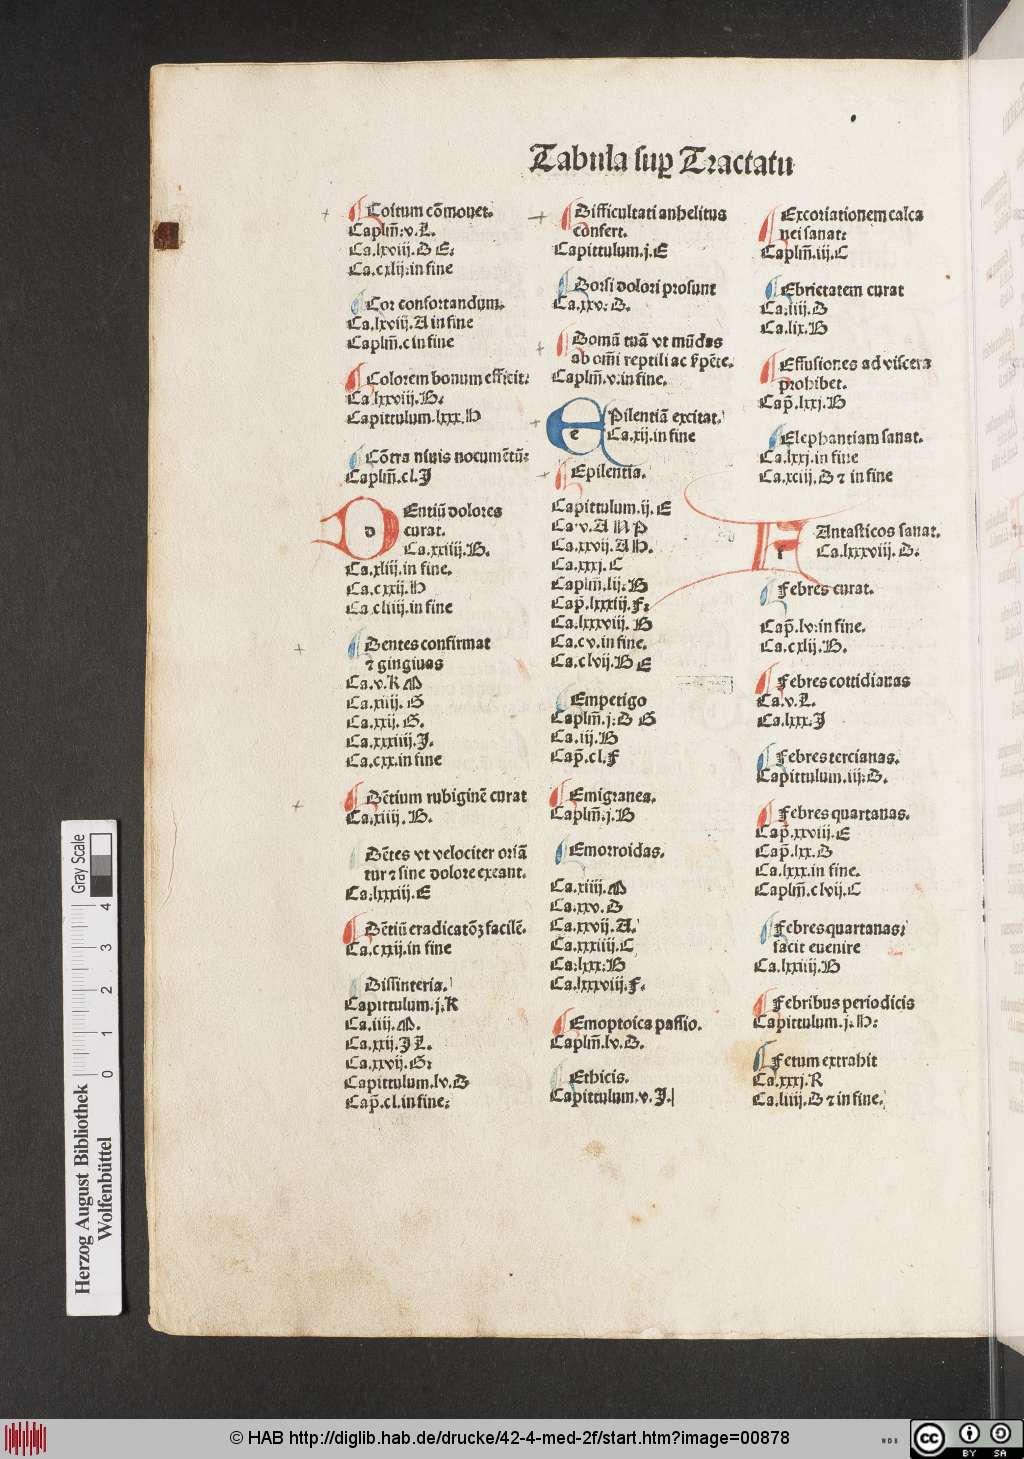 Tabula suꝑ Tractatu
Coitum cōmouet.
Caplm̄: v. L.
Ca. lxviij. D E:
Ca. cxlij: in fine
Cor confortandum.
Ca. lxviij. A in fine
Caplm̄. c in fine
Colorem bonum efficit:
Ca lxxviij. B:
Capittulum. lxxx. H
Cōtra niuis nocumētū:
Caplm̄. cl. J
DEntiū dolores
d curat.
Ca. xxiiij. B.
Ca. xliij. in fine.
Ca. cxxij. H
Ca. cliiij. in fine
Dentes confirmat
⁊ gingiuas
Ca. v. K M
Ca. xiiij. G
Ca. xxij. G.
Ca. xxxiiij. J.
Ca. cxx. in fine
Dētium rubiginē curat
Ca. xiiij. B.
Dētes vt velociter oriā
tur ⁊ sine dolore exeant.
Ca. lxxxiij. E
Dētiū eradicatōꝫ facilē.
Ca. cxxij. in fine
Dissinteria.
Capittulum. j. K
Ca. iiij. M.
Ca. xxij. J L.
Ca. xxvij. G:
Capittulum. lv. D
Cap̄. cl. in fine:
Difficultati anhelitus
confert.
Capittulum. j. E
Dorsi dolori prosunt
Ca. xxv: D.
Domū tuā vt mūdes
ab om̄i reptili ac
Caplm̄. v: in fine.
EPilentiā excitat.
e Ca. xij. in fine
Epilentia.
Capittulum. ij. E
Ca. v. A N P
Ca. xxvij. A H.
Ca. xxxj. C
Caplm̄. lij: B
Cap̄. lxxxiij. F:
Ca. lxxxviij. B
Ca. c v. in fine.
Ca. c lvij. B E
Empetigo
Caplm̄. j: D G
Ca. iij. B
Cap̄. cl. F
Emigranea.
Caplm̄: j. B
Emorroidas.
Ca. xiiij. M
Ca. xxv. D
Ca. xxvij. A.
Ca. xxxiiij. C
Ca: lxxx: B
Ca. lxxxviij. F.
Emoptoica passio.
Caplm̄. lv. D.
Ethicis.
Capittulum. v. J.
Excoriationem calca
nei sanat:
Caplm̄. iij. C
Ebrietatem curat
Ca. iiij. D
Ca. lix. B
Effusiones ad viscera
prohibet.
Cap̄. lxxj. B
Elephantiam sanat.
Ca. lxxj. in fine
Ca. xciij. D ⁊ in fine
FAntasticos sanat.
f Ca. lxxxviij. D:
Febres curat.
Cap̄. lv: in fine.
Ca. cxlij. B.
Febres cottidianas
Ca. v. L.
Ca. lxxx. J
Febres tercianas.
Capittulum. iij: D.
Febres quartanas.
Cap̄. xxviij. E
Cap̄. lxx. D
Ca. lxxx. in fine.
Caplm̄. clvij. C
Febres quartanas:
facit euenire
Ca. lxxiiij. B
Febribus periodicis
Capittulum. j. H:
Fetum extrahit
Ca. xxxj. R
Ca. liiij. D ⁊ in fine.
Gray Scale
0 1 2 3 4
Herzog August Bibliothek
Wolfenbüttel
© HAB http://diglib.hab.de/drucke/42-4-med-2f/start.htm?image=00878
WDB
cc BY SA